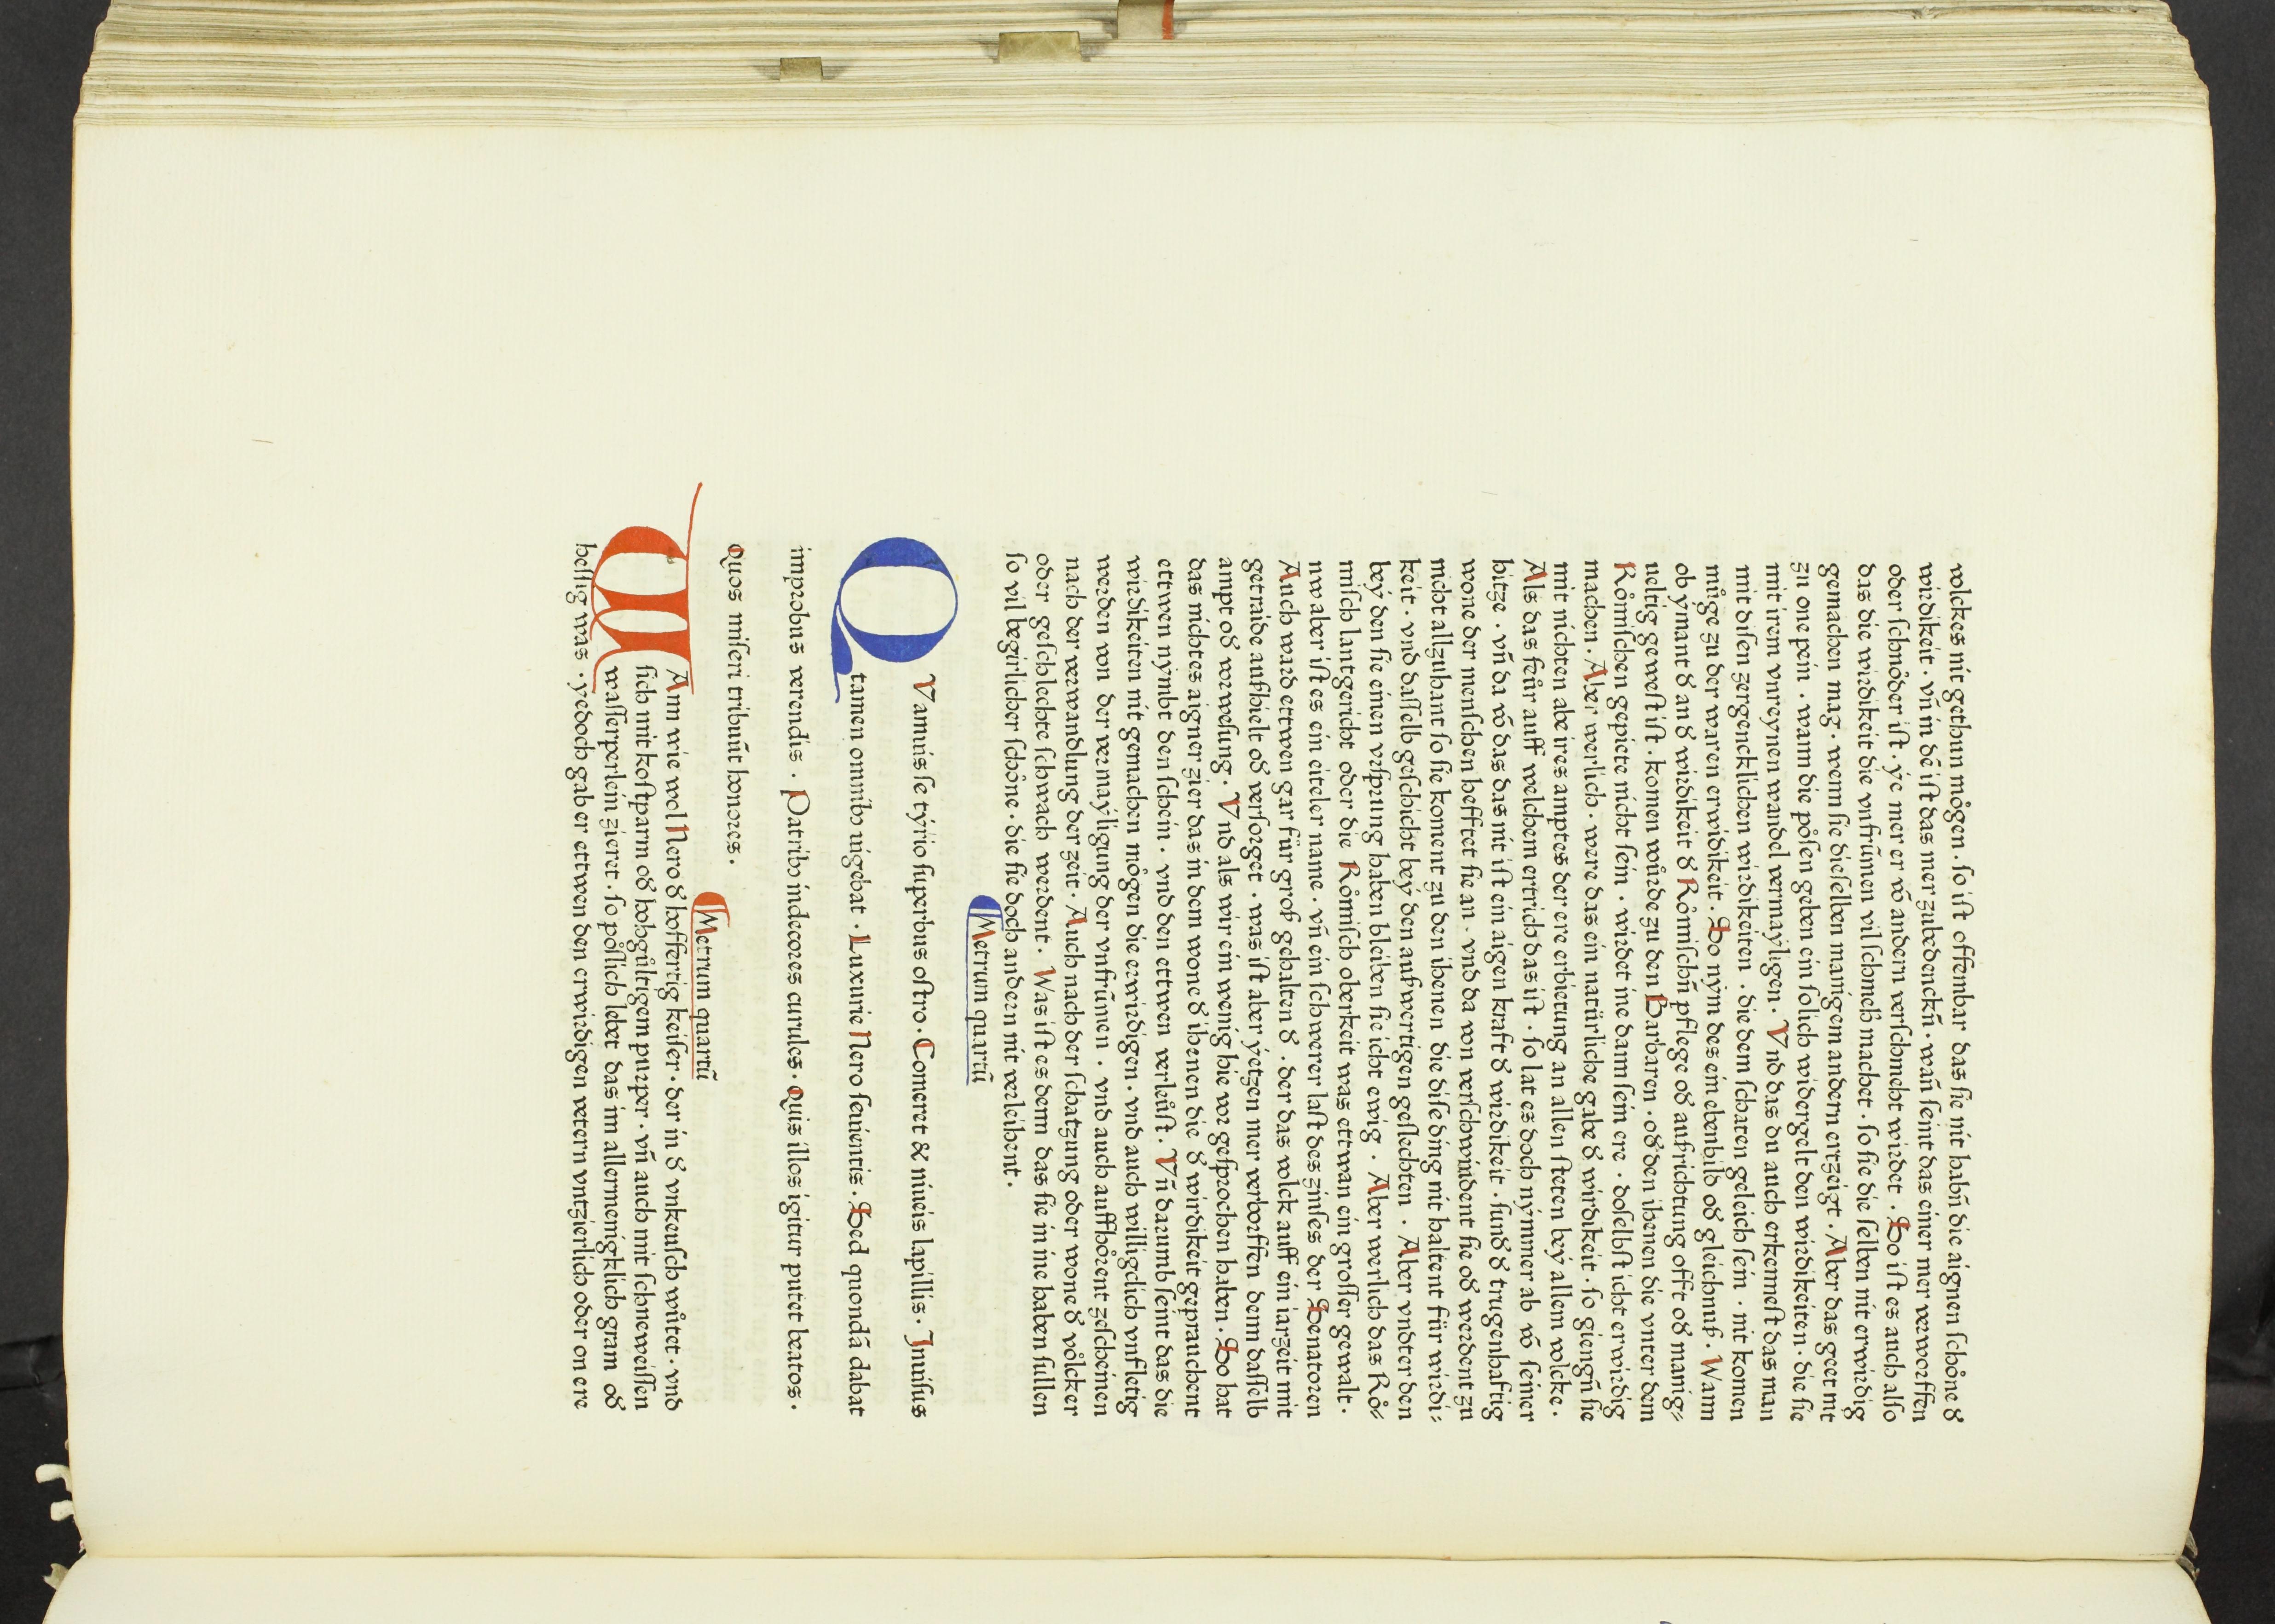 volckes nit gethun mögen · so ist offembar das sie nit habn̄ die aignen schöne d̛
wirdikeit · vn̄ in dē ist das mer zubedenckn̄ · wan̄ seint das einer mer verworffen
oder schnöder ist · ýe mer er vō andern verschmeht wirdet · So ist es auch also
das die wirdikeit die vnfrūmen vil schmeh̛ machet · so sie die selben nit erwirdig
gemachen mag · wenn sie dieselben manigem andern ertzeigt · Aber das geet nit
zu one pein · wann die pösen geben ein solich widergelt den wirdikeiten · die sie
mit irem vnreynen wandel vermaýligen · Vnd das du auch erkennest das man
mit disen zergencklichen wirdikeiten · die dem schaten geleich sein · nit komen
müge zu der waren erwidikeit · So ným des ein ebenbild od̛ gleichnuß · Wann
ob ýmant d̛ an d̛ wirdikeit d̛ Römischn̄ pflege od̛ aufrichtung offt od̛ manig⸗
ueltig gewest ist · komen würde zu den Barbaren · od̛ den ihenen die vnter dem
Römischen gepiete nicht sein · wirdet ine dann sein ere · doselbst icht erwirdig
machen · Aber werlich · were das ein natürliche gabe d̛ wirdikeit · so giengn̄ sie
mit nichten abe ires amptes der ere erbietung an allen steten beý allem volcke ·
Als das feür auff welchem ertrich das ist · so lat es doch nýmmer ab vō seiner
hitze · vn̄ da vō das das nit ist ein aigen kraft d̛ wirdikeit · sund̛ d̛ trugenhaftig
wone der menschen hefftet sie an · vnd da von verschwindent sie od̛ werdent zu
nicht allzuhant so sie koment zu den ihenen die dise ding nit haltent für wirdi⸗
keit · vnd dasselb geschicht beý den außwertigen geslechten · Aber vndter den
beý den sie einen vrsprung haben bleiben sie icht ewig · Aber werlich das Rö⸗
misch lantgericht oder die Römisch oberkeit was ettwan ein grosser gewalt ·
nw aber ist es ein eiteler name · vn̄ ein schwerer last des zinses der Senatoren
Auch ward ettwen gar für groß gehalten d̛ · der das volck auff ein iarzeit mit
getraide aufhielt od̛ versorget · was ist aber ýetzen mer verborffen denn dasselb
ampt od̛ vorwesung · Vnd als wir ein wenig hie vor gesprochen haben · So hat
das nichtes aigner zier das in dem wone d̛ ihenen die d̛ wirdikeit geprauchent
ettwen nýmbt den schein · vnd den ettwen verleüst · Vn̄ darumb seint das die
wirdikeiten nit gemachen mögen die erwirdigen · vnd auch willigclich vnfletig
werden von der vermaýligung der vnfrūmen · vnd auch auffhörent zescheinen
nach der verwandlung der zeit · Auch nach der schatzung oder wone d̛ völcker
oder geschlechte schwach werdent · Was ist es denn das sie in ine haben sullen
so vil begirlicher schöne · die sie doch andern nit verleihent ·
Metrum quartū
QVamuis se týrio superbus ostro · Comeret & niueis lapillis · Inuisus
tamen omnibꝫ uigebat · Luxurie Nero seuientis · Sed quondā dabat
improbus verendis · Patribꝫ indecores curules · Quis illos igitur putet beatos ·
Quos miseri tribuūt honores ·
Metrum quartū
WAnn wie wol Nero d̛ hoffertig keiser · der in d̛ vnkeusch wütet · vnd
sich mit kostparm od̛ hohgültigem purper · vn̄ auch mit schneweissen
wasserperlein zieret · so pöslich lebet das im allermenigklich gram od̛
hessig was · yedoch gab er ettwen den erwirdigen vetern vntzierlich oder on ere